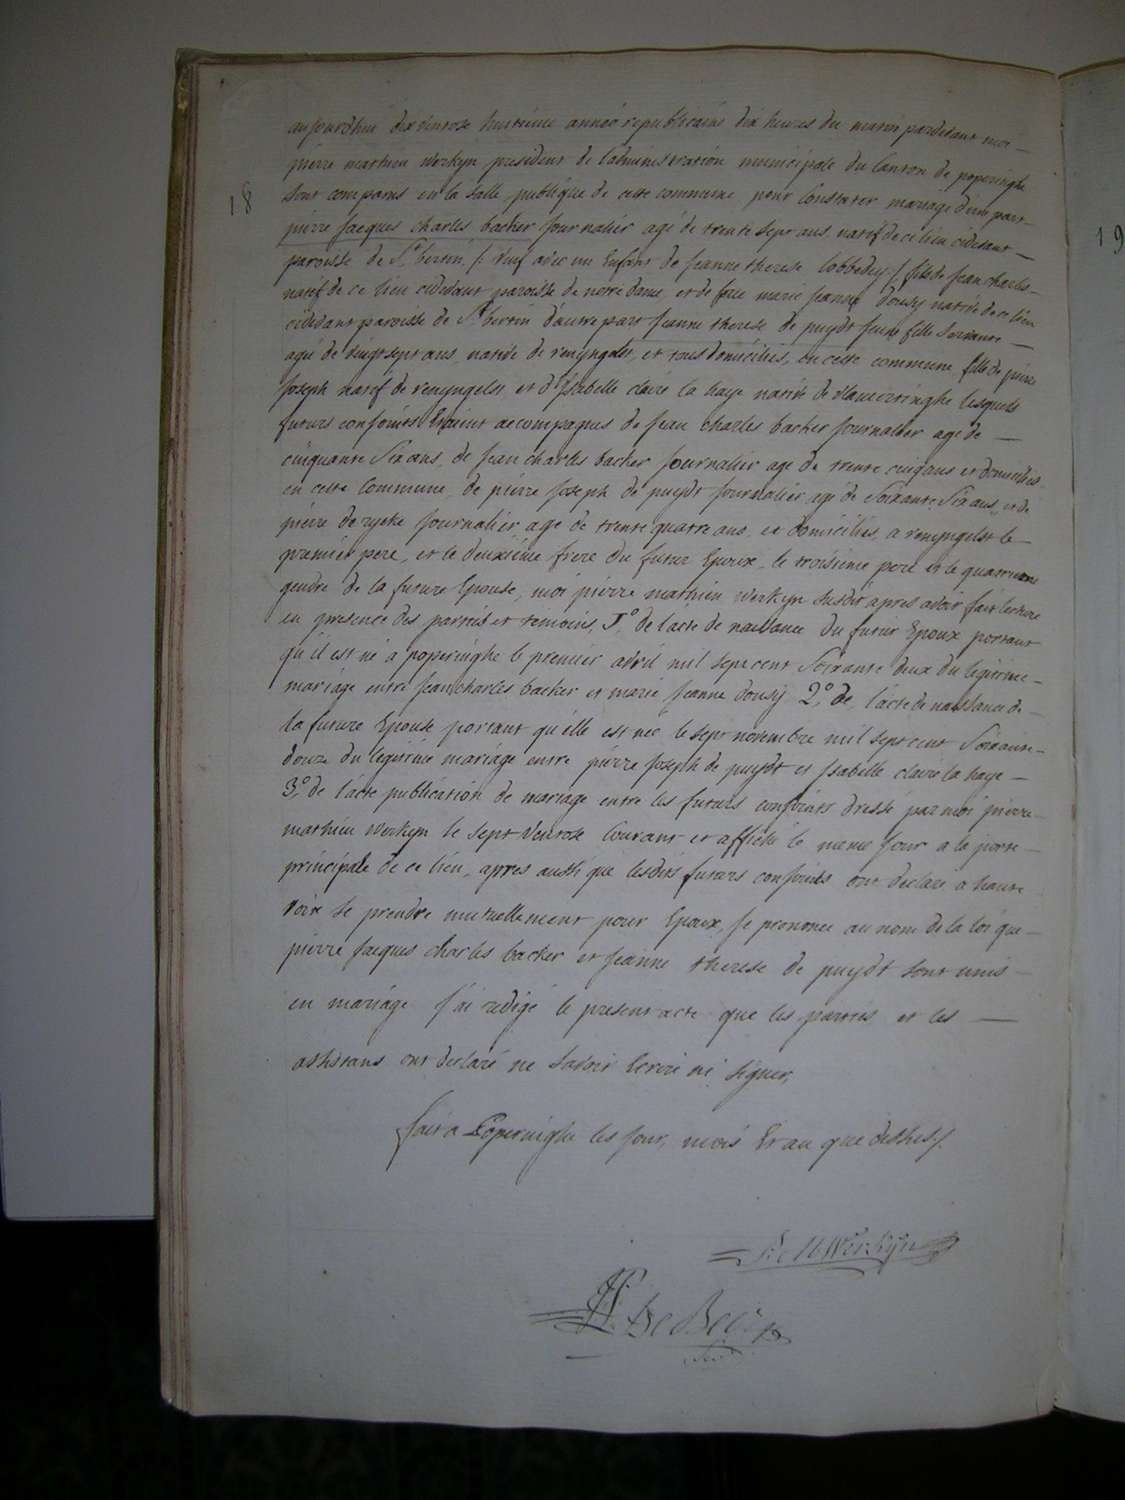 aujourdhui dix ventose huitieme année republicaine dix heures du matin pardevant moi —
pierre mathieu werkyn president de l'administration municipale du Canton de poperinghe
18
19
sont comparus en la salle publique de cette commune pour Constater mariage d'une part
pierre Jacques charles backer Journalier agé de trente sept ans natif de ce lieu cidevant —
paroisse de St bertin /: veuf avec un Enfant de Jeanne therese lobbedey :/ fils de Jean charles —
natif de ce lieu cidevant paroisse de notre dame et de feue marie Jeanne dousy native de ce lieu
cidevant paroisse de St bertin d'autre part Jeanne therese de puydt Jeune fille Servante —
agée de vingt sept ans native de renyngelst, et tous domiciliés, en cette commune fille de pierre
Joseph natif de renyngelst et d'Isabelle claire la haye native de vlamertinghe lesquels
futurs conjoints Etaient accompagnés de Jean charles backer Journalier agé de —
cinquante Six ans, de Jean charles backer Journalier agé de trente cinq ans et domiciliés
en cette Commune, de pierre Joseph de puydt Journalier agé de Soixante Six ans, et de
pierre de rycke Journalier agé de trente quatre ans, et domiciliés, a renyngelst le —
premier pere, et le deuxieme frere du futur Epoux, le troisieme pere et le quatrieme
gendre de la future Epouse, moi pierre mathieu werkyn Susdit apres avoir fait lecture
en presence des parties et temoins, 1° de l'acte de naissance du futur Epoux portant
qu'il est né a poperinghe le premier avril mil sept cent Soixante deux du legitime —
mariage entre Jean charles backer et marie Jeanne dousy 2° de l'acte de naissance de —
la future Epouse portant qu'elle est née le sept novembre mil sept cent Soixante —
douze du legitime mariage entre pierre Joseph de puydt et Isabelle claire la haye —
3° de l'acte publication de mariage entre les futurs conjoints dressé par moi pierre —
mathieu werkyn le sept ventose Courant et affiché le meme Jour a la porte —
principale de ce lieu, apres aussi que lesdits futurs conjoints ont declaré a haute
voix se prendre mutuellement pour Epoux, Je prononce au nom de la loi que —
pierre Jacques charles backer et Jeanne therese de puydt sont unis —
en mariage J'ai redigé le present acte que les parties et les —
assistans ont declaré ne savoir Ecrire ni signer,
fait a Poperinghe les Jour, mois Et an que dessus /.
P. M Werkyn